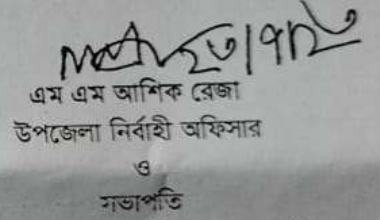 এম এম আশিক রেজা
উপজেলা নির্বাহী অফিসার
ও
সভাপতি